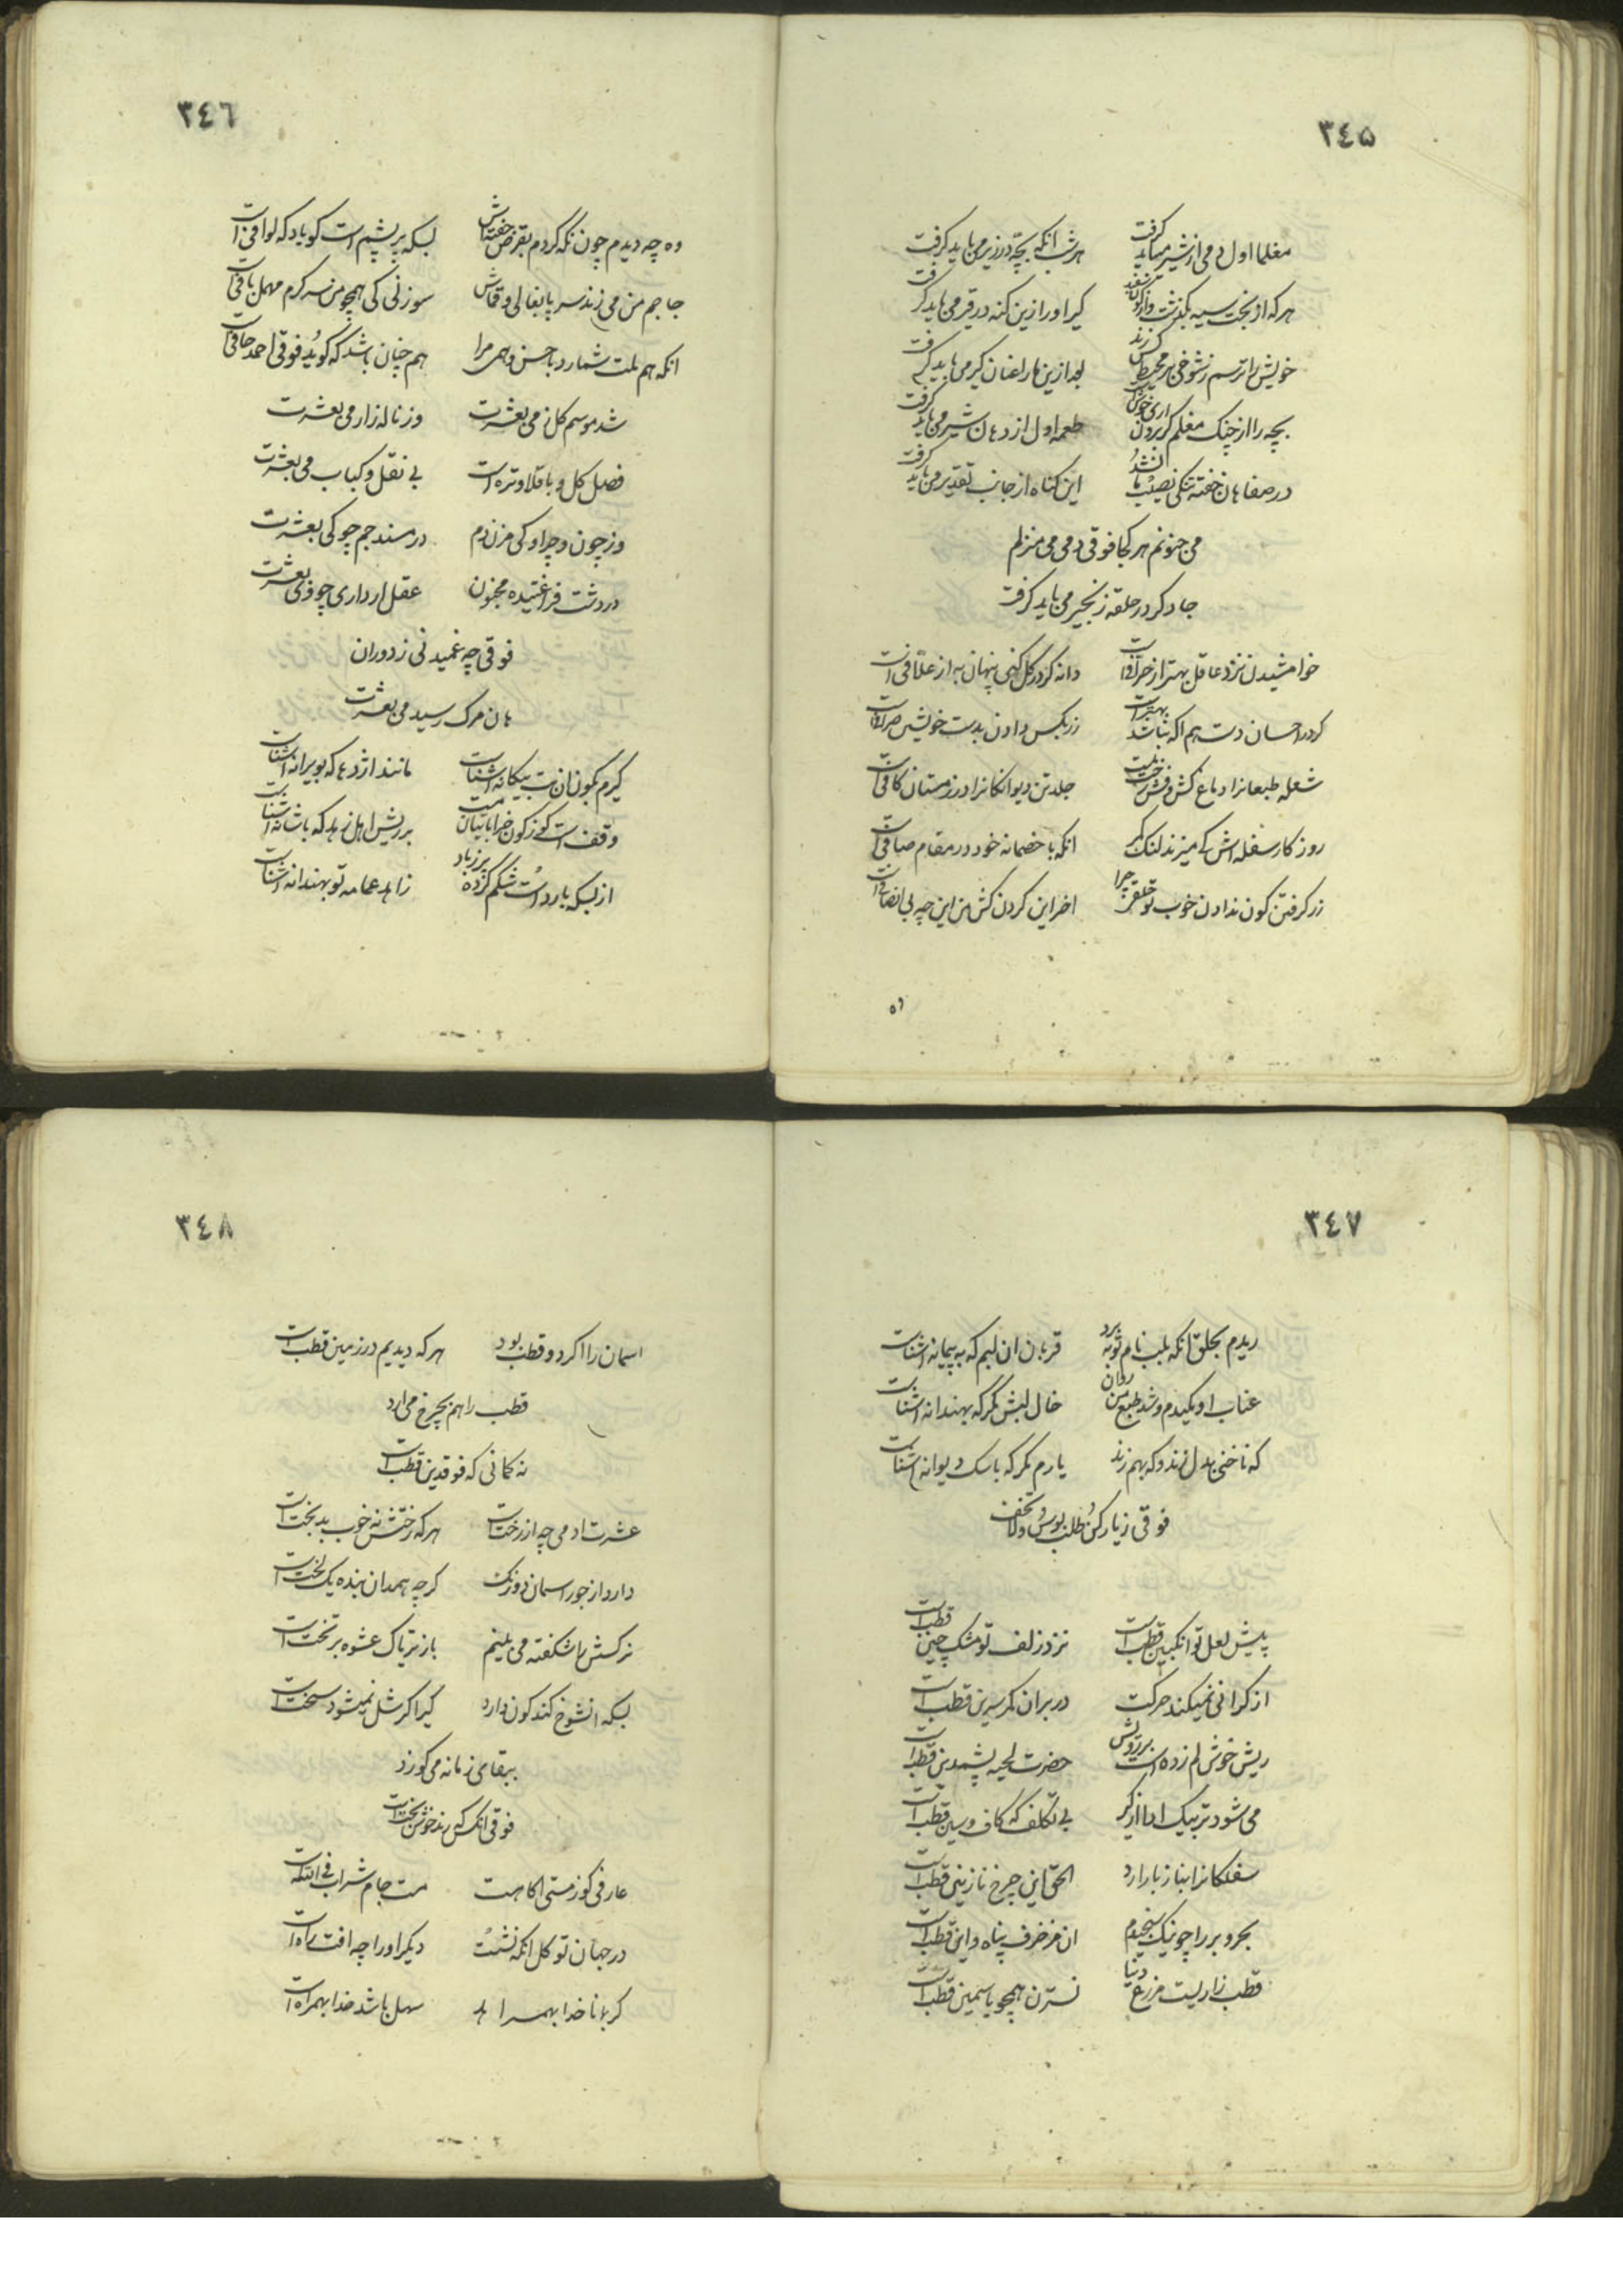 ٣٤٥
مغلما اول دمی از شیر میباید گرفت هر شب انکه بچه در زیر می باید کرفت
هر که از بخت سیه بگذشت کیر او را زین کنه در قیر می باید کرفت
خویش را ترسم ز شوخی بر محیطش کرزند بعد ازین مار لغان کیر می باید کرفت
بچه را از چنک مغلم کر بردن اری خوش است طعمه اول از دهان شیر می باید کرفت
در صفاهان خفته تنکی نصیب ما نشد این کناه از جانب تقدیر می باید کرفت
می جنونم هر کجا فوقی دمی می منزلم
جا دکر در حلقه زنجیر می باید کرفت
خوامشیدن نزد عاقل بهتر از حرافی است دانه کر در کل کنی پنهان به از علافی است
کر در احسان دست هم اکه نباشد بهتر است زر بکس دادن بدست خویش صرافی است
شعله طبعانرا دماغ کش و فش رخت نیست جلد تن دیوانکانرا در زمستان کافی است
روز کار سفله اش کم میزند لنک کمر انکه با خصمانه خود در مقام صافی است
زر کرفتن کون ندادن خوب تو حقیر چرا اخر این کردن کش من این چه بی انصافی است
٣٤٦
وه چه دیدم چون نکه کردم بقرض خفته اش بسکه پر پشم است کویا دکه لوافی است
جاجم من می زند سر پا بغالی و قماش سوزنی کی همچو من سر کرم مهمل بافی است
انکه هم ملت شمارد با حسن وهمی مرا هم چنان باشد که کوید فوقی احمد جافی است
شد موسم کل ز می بعشرت وز ناله زار می بعشرت
فصل کل و باقلا و تره است بی نقل و کباب می بعشرت
وز چون و چرا و کی مزن دم در مسند جم چو کی بعشرت
در دشت فراغتیده مجنون عقل ار داری چو وی بعشرت
فوقی چه غمیدنی ز دوران
هان مرک رسید می بعشرت
کیرم بکون ان بت بیکانه اشناست مانند اژدها که بویرانه اشناست
وقف است کوز کون خراباتیان مست بر ریش اهل زهد که باشانه اشناست
از بسکه بارد است شکم کرده پرزباد زاهد عمامه تو بهندانه اشناست
٣٤٧
ریدم بحلق انکه بلب نام توبه برد قربان ان لبم که به پیمانه اشناست
عناب او مکیدم و شد طبع من روان خال لبش مکر که بهندانه اشناست
که ناخنی بدل زند و که بهم زند یارم مکر که با سک دیوانه اشناست
فوقی ز یار کن طلب بوس و لا تخف
پیش لعل تو انکبین قطب است نزد زلف تو مشک چین قطب است
از کرانی نمیکند حرکت در بر ان کمر سرین قطب است
ریش خوش لم زده است بر رویش حضرت لحیه پشمدین قطب است
می شود تر بیک ادا از کیر بی تکلف که کاف و سین قطب است
سفلکانرا بناز باز ارد الحق این چرخ نازنین قطب است
بحر و بر را چونیک سنجیدم ان مزخرف پناه و این قطب است
قطب زاریست مزرع دنیا نسترن همچو یاسمین قطب است
٣٤٨
اسمان را اکر دو قطب بود هر که دیدیم در زمین قطب است
قطب را هم بچرخ می ارد
نه کمانی که فوقدین قطب است
عشرت ادمی چه از رخت است هر که رختش نه خوب بدبخت است
دارد از جور اسمان دو رنک کرچه همدان بنده یک لخت است
نرکسش را شکفته می بینم باز تریاک عشوه بر تخت است
بسکه انشوخ کند کون دارد کیر اکر شل نمیشود سخت است
ببقای زمانه می کوزد
فوقی انکس که رند خوش بخت است
عارفی کوز مستی اکاهست مست جام شراب فی الله است
در جهان تو کل انکه نشست دیکر او را چه افت راه است
کر بلا ناخدا بهمراهد سهل باشد خدا بهمراه است